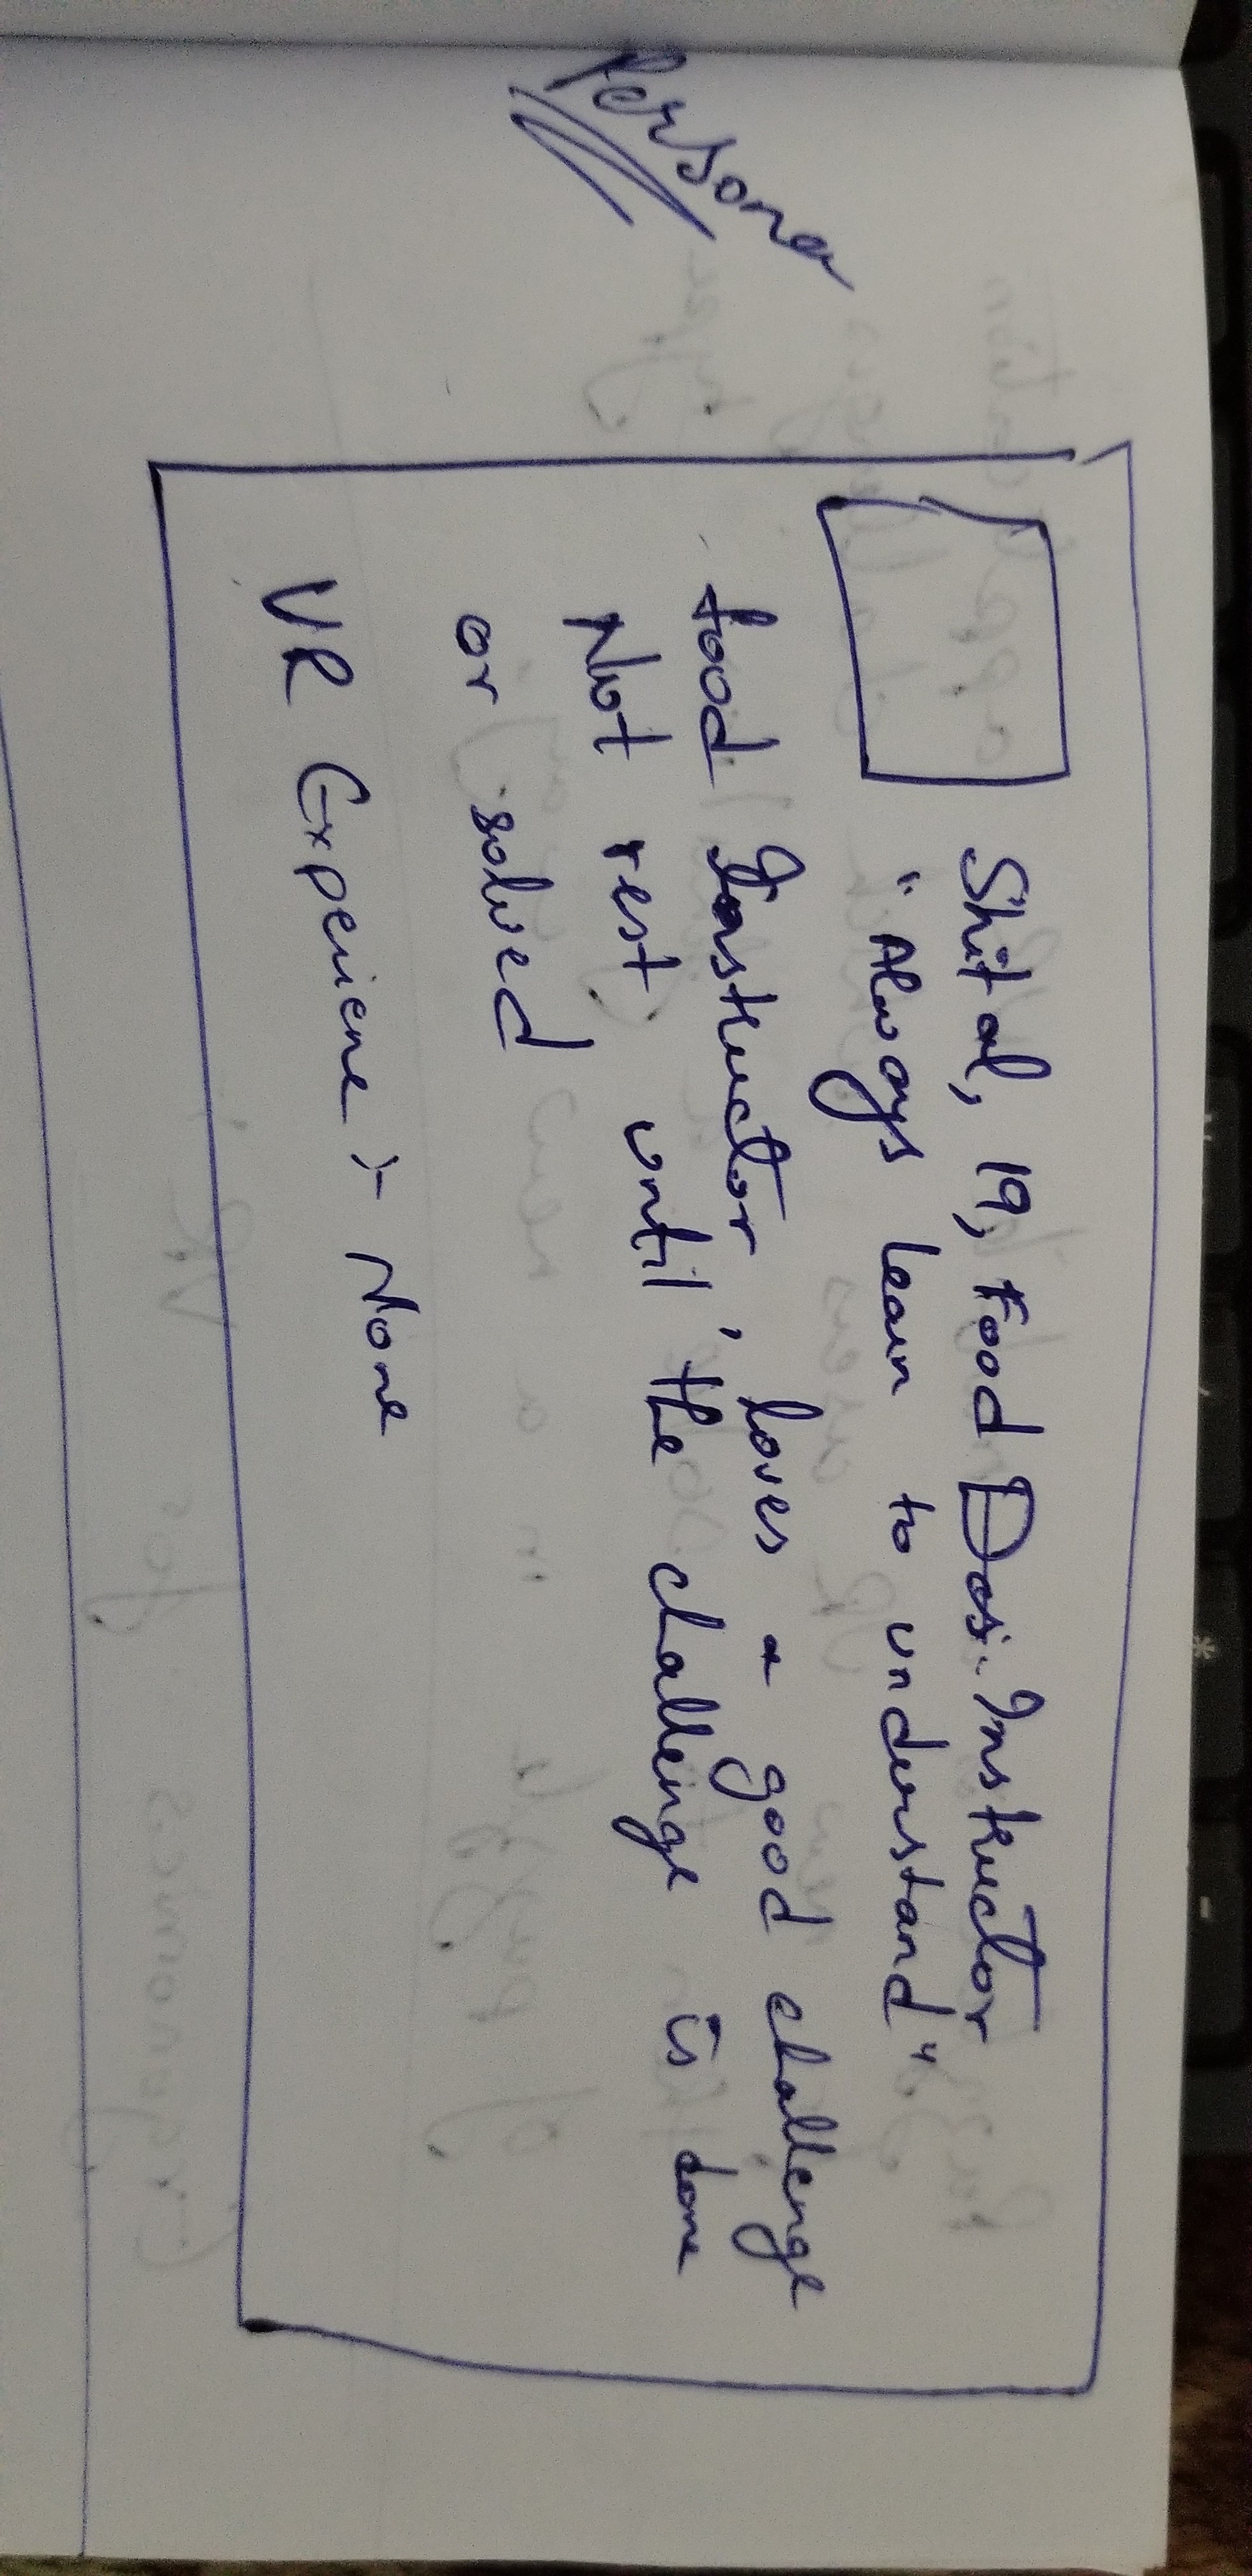 Persona
Shital, 19, Food Des. Instructor
"Always learn to understand"
food Instructor, loves a good challenge
Not rest until the challenge is done
or solved
VR Experiene :- None